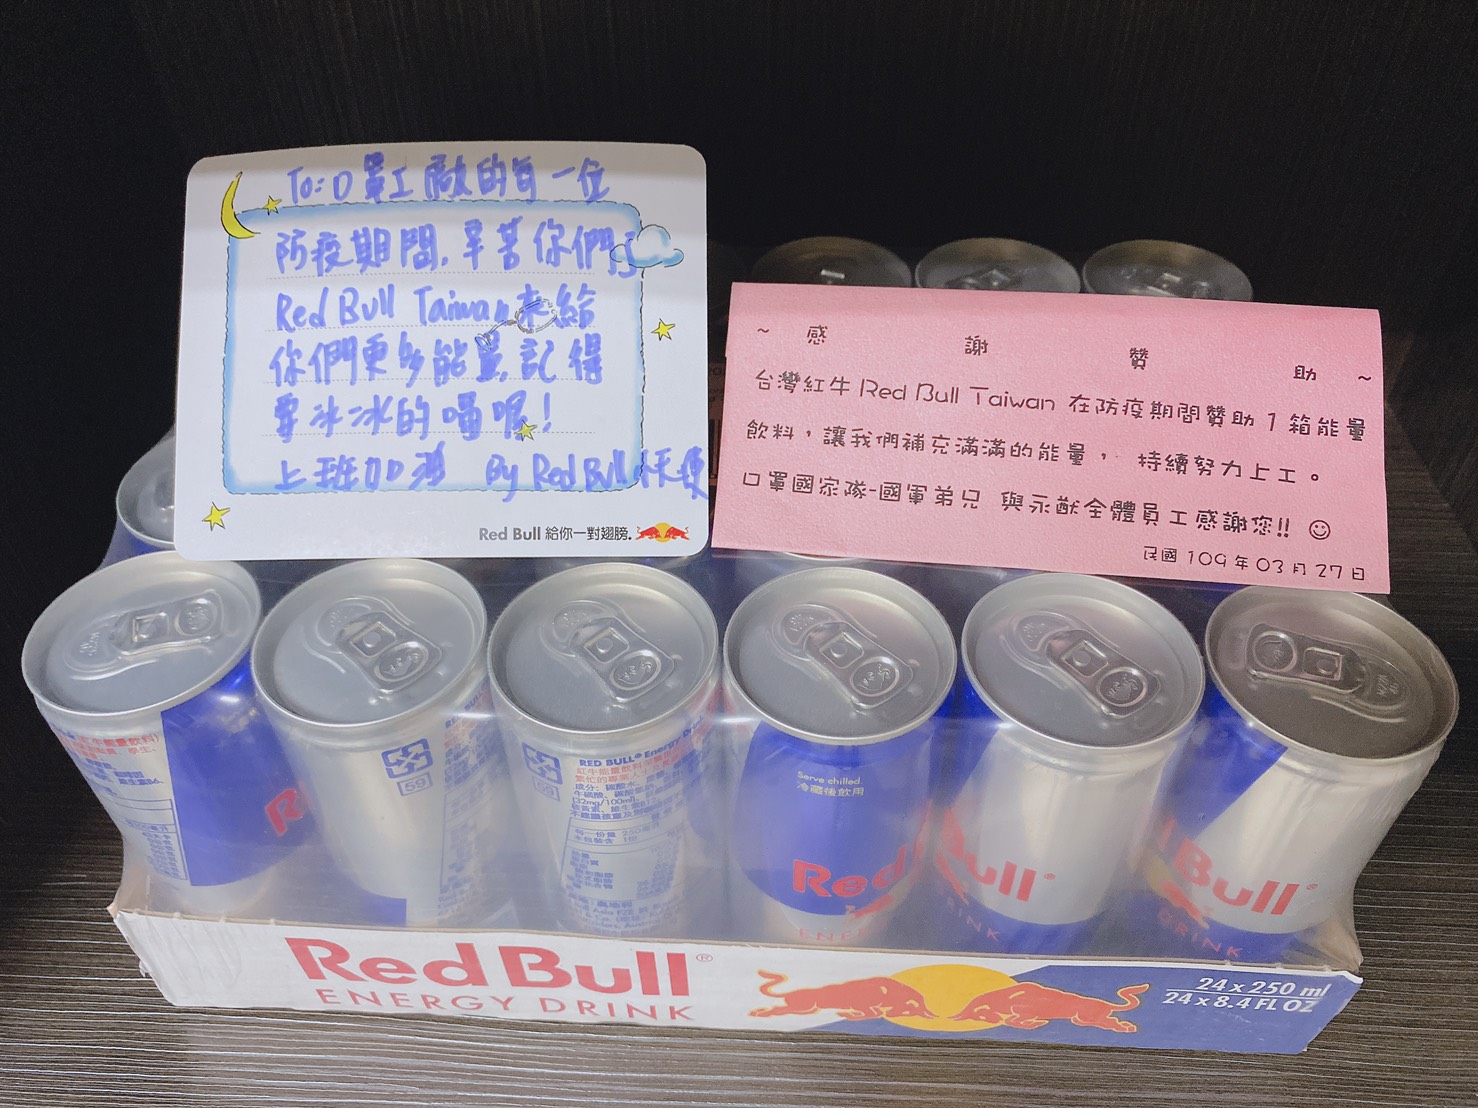 To:口罩工廠的每一位
防疫期間,辛苦你們了
Red Bull Taiwan來給
你們更多能量,記得
要冰冰的喝喔!
上班加油 By Red Bull
Red Bull 給你一對翅膀.
~ 感 謝 贊 助 ~
台灣紅牛 Red Bull Taiwan 在防疫期間贊助 1 箱能量
飲料,讓我們補充滿滿的能量, 持續努力上工。
口罩國家隊-國軍弟兄 與永猷全體員工感謝您!! ☺
民國 109 年 03 月 27 日
59
59
RED BULL® Energy Drink
紅牛能量飲料
(32mg/100ml)
Serve chilled
冷藏後飲用
Red
Bull®
Bull®
DRINK
Red Bull®
ENERGY DRINK
24 x 250 ml
24 x 8.4 FL OZ